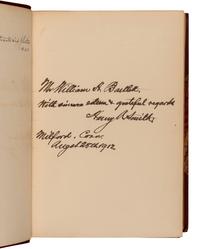 Mr William A. Bartlett.
With sincere esteem & grateful regards
Henry A. Smith.
Milford. Conn.
August 25th 1912